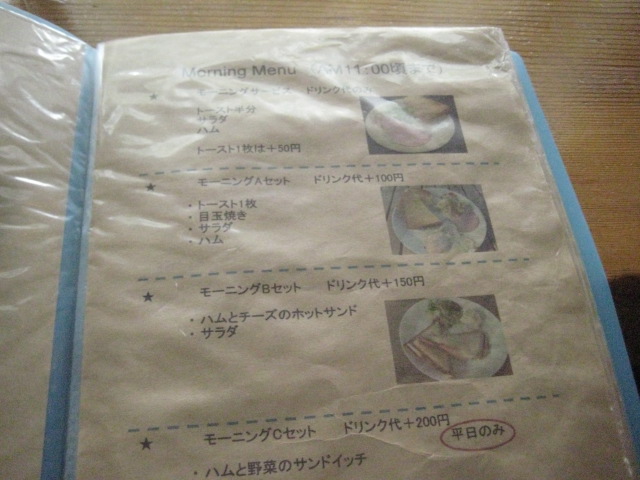 Morning Menu (AM11:00頃まで)
★ モーニングサービス ドリンク代のみ
トースト半分
サラダ
ハム
トースト1枚は＋50円
★ モーニングAセット ドリンク代＋100円
・トースト1枚
・目玉焼き
・サラダ
・ハム
★ モーニングBセット ドリンク代＋150円
・ハムとチーズのホットサンド
・サラダ
★ モーニングCセット ドリンク代＋200円
平日のみ
・ハムと野菜のサンドイッチ